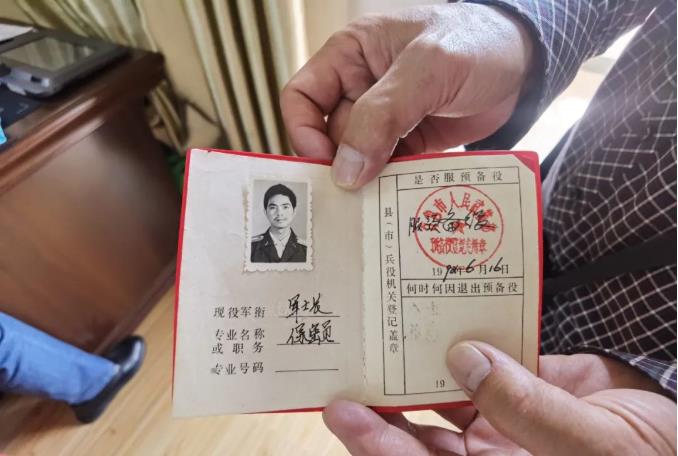 现役军衔 军士长
专业名称
或职务
专业号码
县（市）兵役机关登记盖章
是否服预备役
服预备役
6月16日
何时何因退出预备役
19